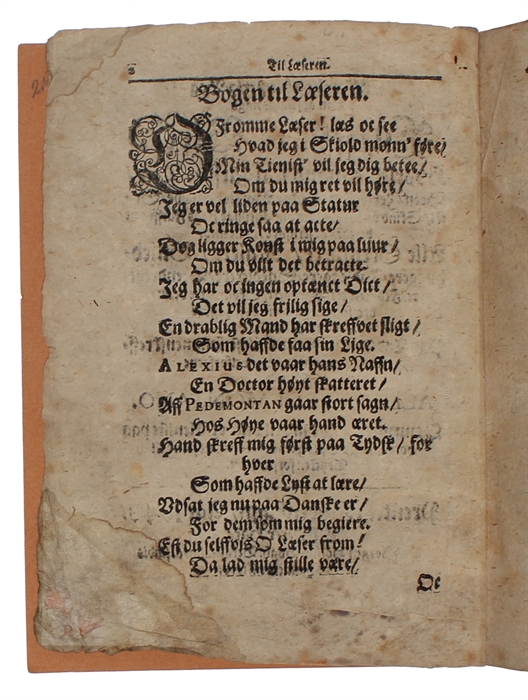 Til Læseren.
Bogen til Læseren.
O Fromme Læser! læs oc see
Hvad jeg i Skiold monn' føre/
Min Tienist' vil jeg dig betee/
Om du mig ret vil høre/
Jeg er vel liden paa Statur
Oc ringe saa at acte/
Dog ligger Konst i mig paa luur/
Om du vilt det betracte.
Jeg har oc ingen optænct Dict/
Det vil jeg frilig sige/
En drablig Mand har skreffvet sligt/
Som haffde faa sin Lige.
ALEXIUS det vaar hans Naffn/
En Doctor høyt skatteret/
Aff PEDEMONTAN gaar stort sagn/
Hos Høye vaar hand æret.
Hand skreff mig først paa Tydsk/ for
hver
Som haffde Lyst at lære/
Vdsat jeg nu paa Danske er/
For dem som mig begiere.
Est du selffviis O Læser from!
Da lad mig stille være/
Oc